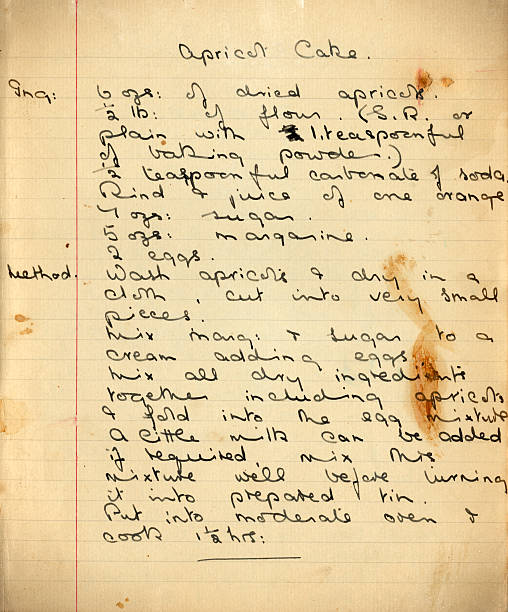 Apricot Cake.
Ing: 6 ozs: of dried apricots.
½ lb: of flour. (S.R. or
plain with 1 teaspoonful
of baking powder.)
½ teaspoonful carbonate of soda.
Rind & juice of one orange
7 ozs: sugar.
5 ozs: margarine.
2 eggs.
Method. Wash apricots & dry in a
cloth, cut into very small
pieces.
Mix marg: & sugar to a
cream adding eggs
Mix all dry ingredients
together including apricots
& fold into the egg mixture
A little milk can be added
if required, mix this
mixture well before turning
it into prepared tin.
Put into moderate oven &
cook 1½ hrs: